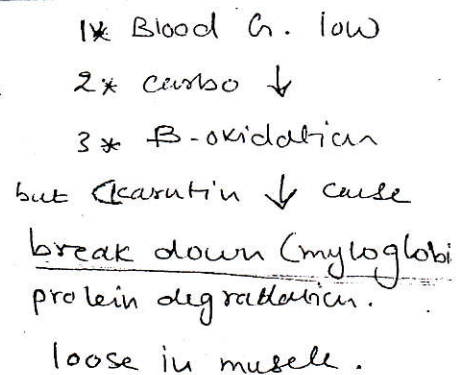 1* Blood G. low
2* carbo ↓
3* B-oxidation
but Karnutin ↓ cause
break down (myloglobi
protein degradation.
loose in musell.